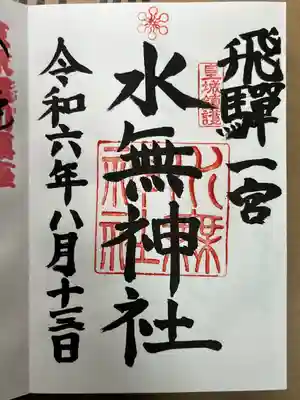 飛騨一宮
皇城鎮護
水無神社
水無神社
令和六年八月十三日